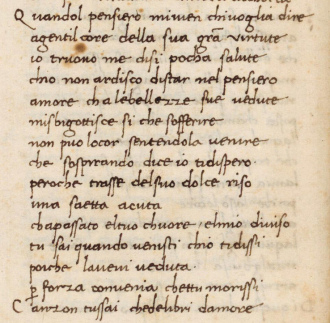 Quandol pensiero miven chivoglia dire
agentil core della sua grã virtute
io truovo me disi pocha salute
chio non ardisco distar nel pensiero
amore cha lebellezze sue vedute
misbigottisce si che sofferire
non puo locor sentendola venire
che sospirando dice io tidispero
peroche trasse delsuo dolce riso
una saetta acuta
chapassato eltuo chuore elmio diviso
tu sai quando venisti chio tidissi
poiche lavevi veduta
p̲ forza convenia chettu morissi
Canzon tussai chedelibri damore